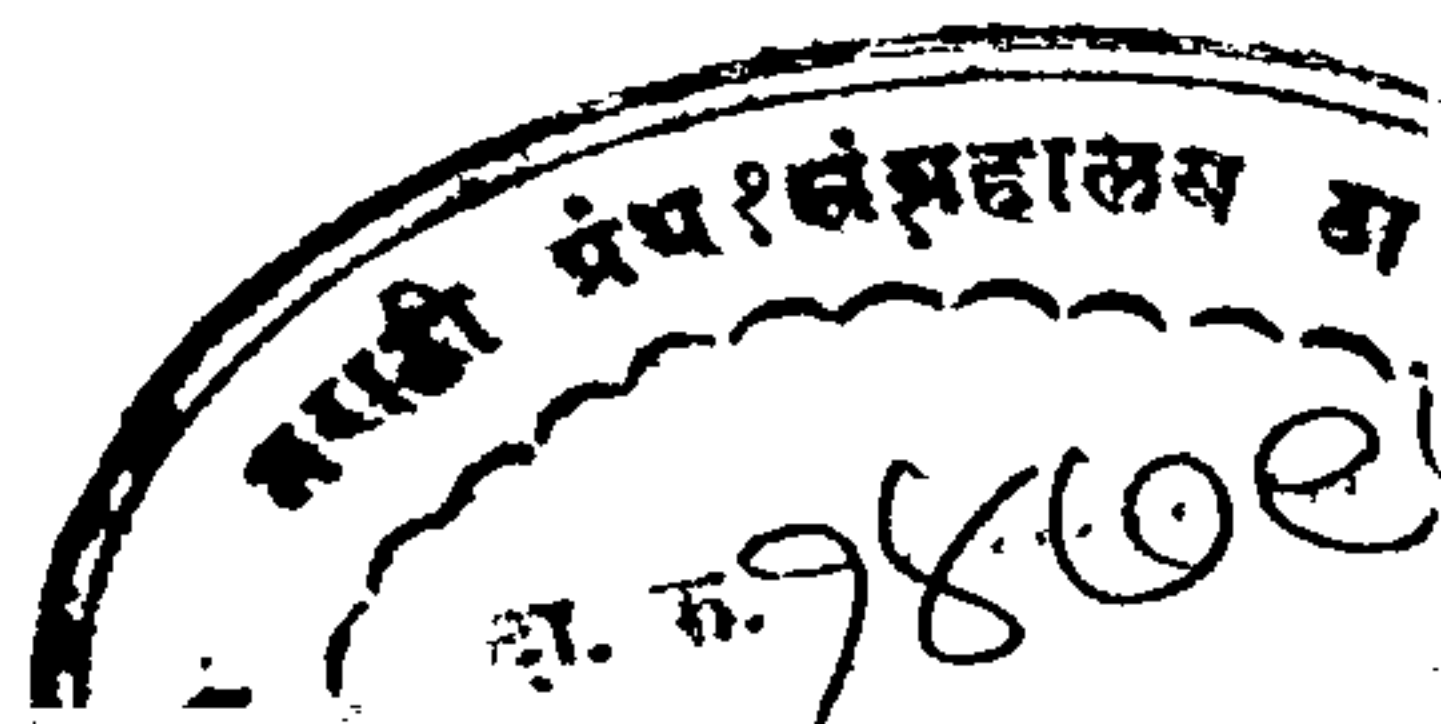 मराठी ग्रंथ संग्रहालय ठा
दा. क्र. १४७९